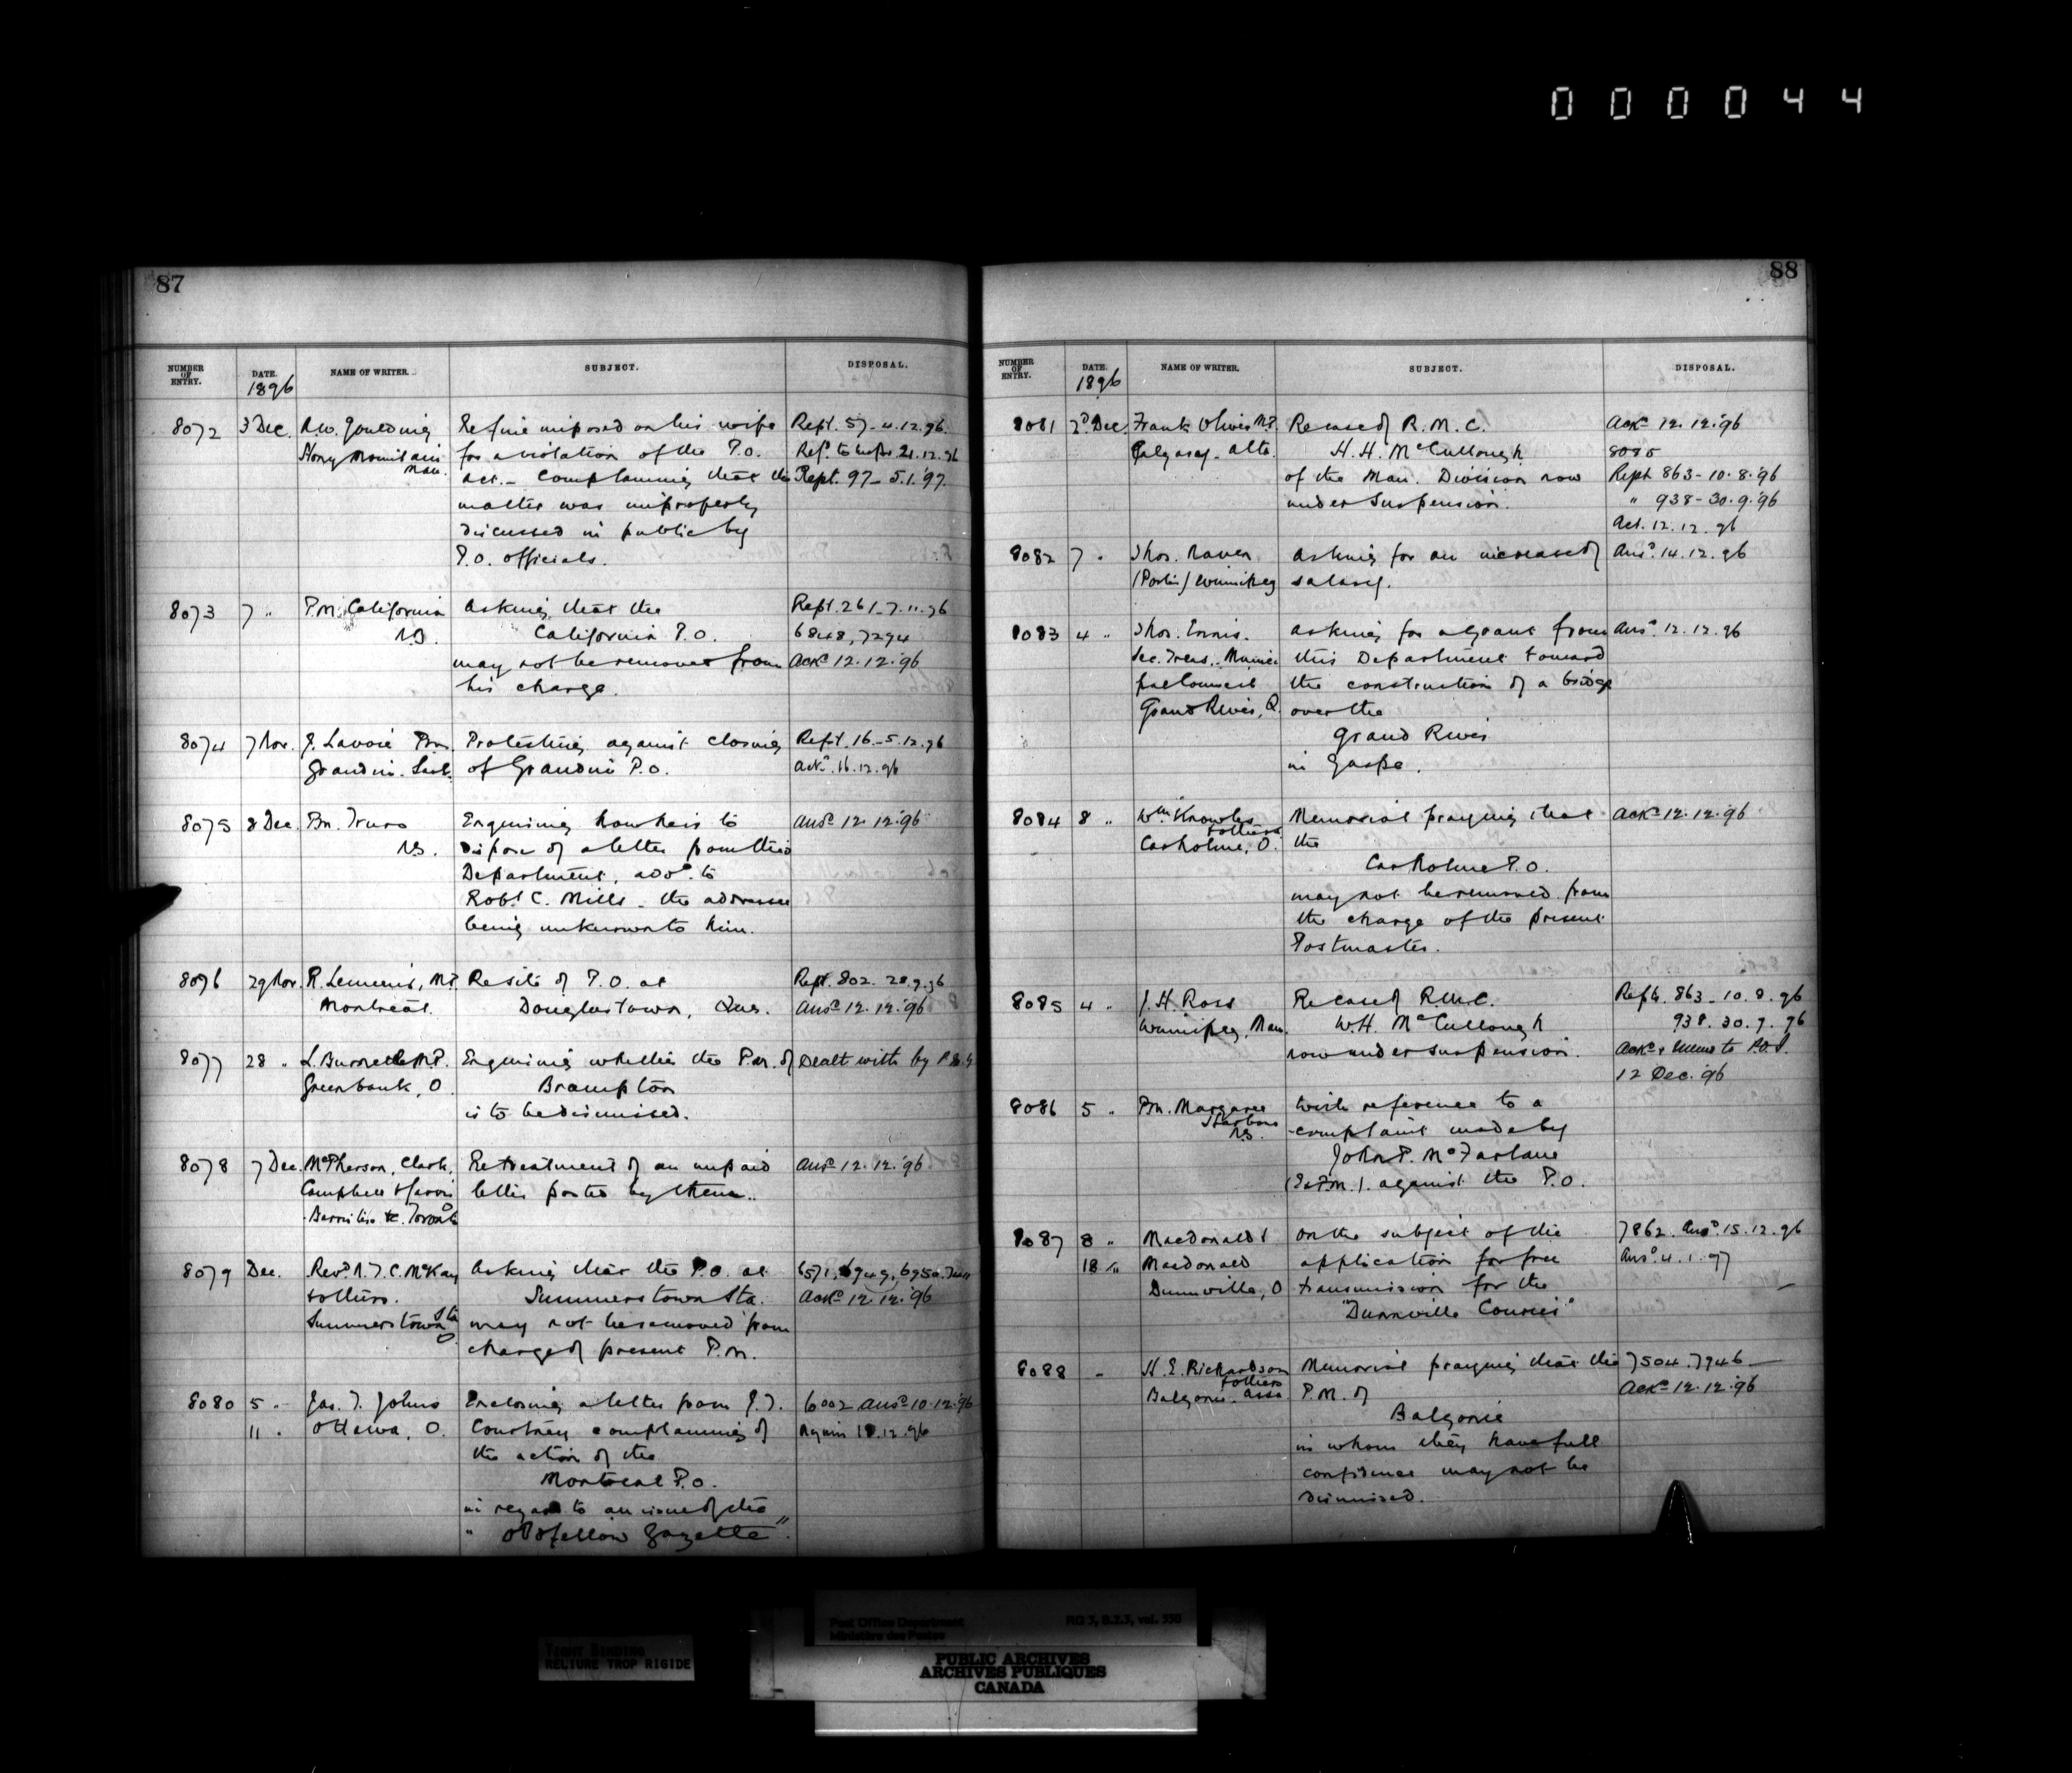 000044
87
NUMBER OF ENTRY. DATE. NAME OF WRITER. SUBJECT. DISPOSAL.
1896
8072 3 Dec. R.W. Goulding Re fine imposed on his wife Rept. 57-4.12.96.
Stony Mountain for a violation of the P.O. Ref. to 21.12.96
Man. act. - Complaining that the Rept. 97-5.1.97.
matter was improperly
discussed in public by
P.O. officials.
8073 7 " P.M. California Asking that the Rept. 261-7.11.96
N.B. California P.O. 6848, 7294
may not be removed from Ackd 12.12.96
his charge.
8074 7 Nov. J. Lavoie Pm. Protesting against closing Rept. 16-5.12.96
Grandin. Sask. of Grandin P.O. Ackd. 16.12.96
8075 8 Dec. Pm. Truro Enquiring how he is to Ansd 12.12.96
N.S. dispose of a letter from this
Department, addd. to
Robt C. Mills - the addressee
being unknown to him.
8076 29 Nov. R. Lemieux, M.P. Re site of P.O. at Rept. 802. 28.9.96
Montreal. Douglastown, Que. Ansd 12.12.96
8077 28 " L. Burnett M.P. Enquiring whether the P.M. of Dealt with by
Greenbank, O. Brampton
is to be dismissed.
8078 7 Dec. McPherson, Clark, Re treatment of an unpaid Ansd 12.12.96
Campbell & Jarvis letter posted by them.
Barristers &c. Toronto
8079 Dec. Revd. N.T.C. McKay Asking that the P.O. at 6571, 6949, 6950,
& others. Summerstown Sta. Ackd 12.12.96
Summerstown Sta may not be removed from
O. charge of present P.M.
8080 5 " Jas. T. Johns Enclosing a letter from J.T. 6002 Ansd 10.12.96
11 " Ottawa, O. Courtney complaining of Again 12.96
the action of the
Montreal P.O.
in regard to an issue of the
" Oddfellow Gazette ".
88
NUMBER OF ENTRY. DATE. NAME OF WRITER. SUBJECT. DISPOSAL.
1896
8081 2d Dec. Frank Oliver M.P. Re case of R.M.C. Ackd 12.12.96
Calgary, Alta. H.H. McCullough 8085
of the Man. Division now Rept 863-10.8.96
under suspension. " 938-30.9.96
12.12.96
8082 7 " Thos. Raven Asking for an increase of Ansd. 14.12.96
(Porter) Winnipeg salary.
8083 4 " Thos. Ennis. Asking for a grant from Ansd. 12.12.96
Sec. Treas. Munici this Department toward
pal Council the construction of a bridge
Grand River, Q. over the
Grand River
in Gaspe.
8084 8 " Wm Knowles Memorial praying that Ackd 12.12.96
& others
Carholme, O. the
Carholme P.O.
may not be removed from
the charge of the present
Postmaster.
8085 4 " J.H. Ross Re case of R.M.C. Repts. 863-10.8.96
Winnipeg, Man. W.H. McCullough 938. 30.9.96
now under suspension. Ackd & memo to P.O.I.
12 Dec. 96
8086 5 " Pm. Margaree With reference to a
Harbour
N.S. complaint made by
John P. McFarlane
(Ex P.M.). against the P.O.
8087 8 " Macdonald & On the subject of the 7862. Ansd. 15.12.96
18 " Macdonald application for free Ansd. 4.1.97
Dunnville, O transmission for the
"Dunnville Courier"
8088 - H.E. Richardson Memorial praying that the 7504. 7946
& others
Balgonie. Assa. P.M. of Ackd 12.12.96
Balgonie
in whom they have full
confidence may not be
dismissed.
Post Office Department RG 3, B.2.3, vol. 550
Ministère des Postes
TIGHT BINDING
RELIURE TROP RIGIDE
PUBLIC ARCHIVES
ARCHIVES PUBLIQUES
CANADA